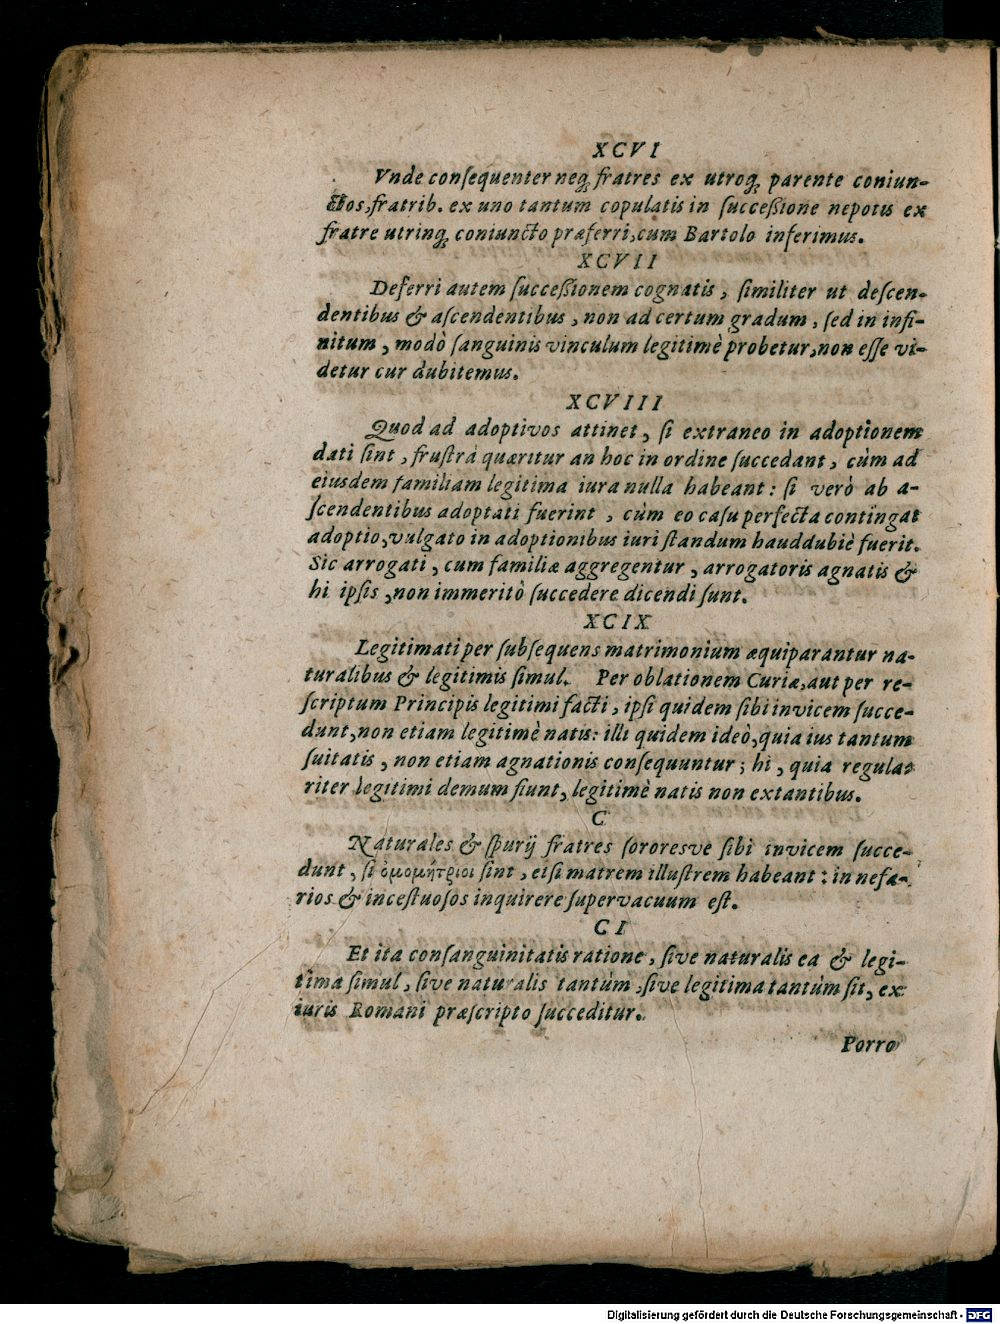 XCVI
Vnde conſequenter neq́; fratres ex utroq́; parente coniun-
ctos, fratrib. ex uno tantum copulatis in ſucceßione nepotis ex
fratre utrinq́; coniuncto præferri, cum Bartolo inferimus.
XCVII
Deferri autem ſucceßionem cognatis, ſimiliter ut deſcen-
dentibus & aſcendentibus, non ad certum gradum, ſed in infi-
nitum, modò ſanguinis vinculum legitimè probetur, non eſſe vi-
detur cur dubitemus.
XCVIII
Quod ad adoptivos attinet, ſi extraneo in adoptionem
dati ſint, fruſtrà quæritur an hoc in ordine ſuccedant, cùm ad
eiusdem familiam legitima iura nulla habeant: ſi verò ab a-
ſcendentibus adoptati fuerint, cùm eo caſu perfecta contingat
adoptio, vulgato in adoptionibus iuri ſtandum hauddubiè fuerit.
Sic arrogati, cum familiæ aggregentur, arrogatoris agnatis &
hi ipſis, non immeritò ſuccedere dicendi ſunt.
XCIX
Legitimati per ſubſequens matrimonium æquiparantur na-
turalibus & legitimis ſimul. Per oblationem Curiæ, aut per re-
ſcriptum Principis legitimi facti, ipſi quidem ſibi invicem ſucce-
dunt, non etiam legitimè natis: illi quidem ideò, quia ius tantum
ſuitatis, non etiam agnationis conſequuntur; hi, quia regula-
riter legitimi demum fiunt, legitimè natis non extantibus.
C
Naturales & ſpurij fratres ſororesve ſibi invicem ſucce-
dunt, ſi ὁμομήτριοι ſint, etſi matrem illuſtrem habeant: in nefa-
rios & inceſtuoſos inquirere ſupervacuum eſt.
CI
Et ita conſanguinitatis ratione, ſive naturalis ea & legi-
tima ſimul, ſive naturalis tantùm, ſive legitima tantùm ſit, ex
iuris Romani præſcripto ſucceditur.
Porrò
Digitalisierung gefördert durch die Deutsche Forschungsgemeinschaft - DFG